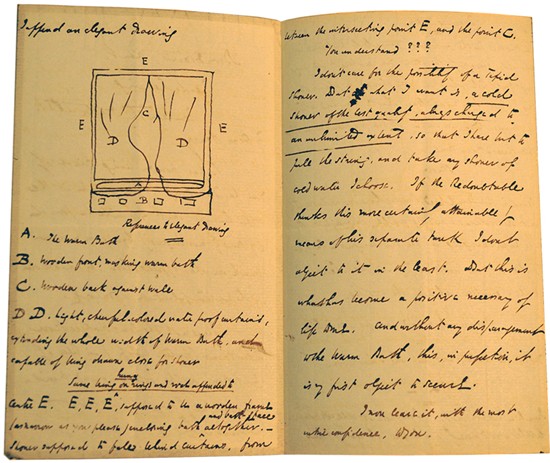 I append an elegant drawing
E
C
E D D E
A
B
References to Elegant Drawing
A. The Warm Bath
B. Wooden front, masking warm bath
C. Wooden back against wall
D D. Light, cheerful-colored water proof curtains,
extending the whole width of Warm Bath, and
capable of being drawn close for shower
hung
Same being on rings and rods appended to
centre E. E, E, E, supposed to be a wooden
and bath place
(as narrow as you please) enclosing bath altogether. —
Shower supposed to fall behind curtains, from
between the intersecting point E, and the point C.
You understand ? ? ?
I don't care for the of a Tepid
shower. But what I want is, a cold
shower of the best quality, always charged to
an unlimited extent, so that I have but to
pull the string, and take any shower of
cold water I choose. If the Redoubtable
thinks this more certainly attainable by
means of his separate tank I don't
object to it in the least. But this is
what has become a positive necessary of
life to me. And without any disarrangement
to the Warm Bath, this, in perfection, it
is my first object to secure.
I now leave it, with the most
entire confidence, to you.